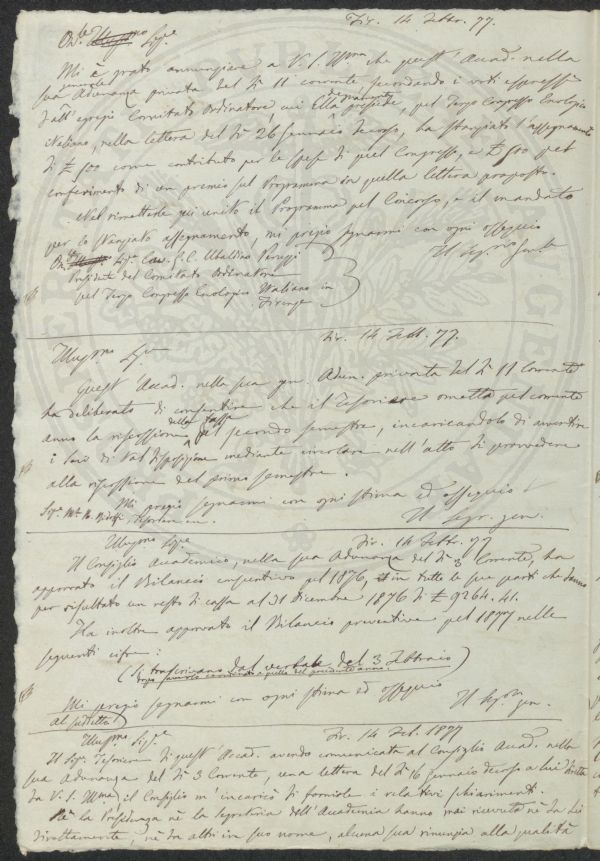 Fir. 14 Febbr. 77.
On.le Sig.e
Mi è grato annunziare a V. S. Ill.ma che quest'Accad. nella
sua Adunanza privata del dì 11 corrente secondando i voti espressi
dall'egregio Comitato Ordinatore, cui Ella presiede, pel Terzo Congresso Enologico
Italiano, nella lettera del dì 26 Gennaio decorso, ha stanziato l'assegnamento
di £ 500 come contributo per le spese di quel Congresso, e £ 500 pel
conferimento di un premio sul Programma in quella lettera proposto.
Nel rimetterle qui unito il Programma pel Concorso, e il mandato
per lo stanziato assegnamento, mi pregio segnarmi con ogni ossequio
Il Seg.rio Gen.le
Sig.r Cav. G. C. Ubaldino Peruzzi
Presidente del Comitato Ordinatore
pel Terzo Congresso Enologico Italiano in
Firenze
Fir. 14 Febb. 77.
Illus.mo Sig.re
Quest'Accad. nella sua Adun. privata del dì 11 Corrente
ha deliberato di consentire che il Tesoriere ometta pel corrente
anno la riscossione della tassa del secondo semestre, incaricandolo di avvertire
i Soci di tal disposizione mediante circolare nell'atto di provvedere
alla riscossione del primo semestre.
Mi pregio segnarmi con ogni stima ed ossequio
Il Segr. gen.
Illus.mo Sig.e
Fir. 14 Febbr. 77
Il Consiglio Accademico, nella sua Adunanza del dì 3 Corrente, ha
approvato il Bilancio consuntivo pel 1876, in tutte le sue parti che danno
per risultato un resto di cassa al 31 Dicembre 1876 di £ 9264.41.
Ha inoltre approvato il Bilancio preventivo pel 1877 nelle
seguenti cifre:
(Si trascrivano dal verbale del 3 Febbraio)
Mi pregio segnarmi con ogni stima ed ossequio
Il Seg.rio gen.
al suddetto
Illus.mo Sig.re
Fir. 14 Feb. 1877
Il Sig.r Tesoriere di quest'Accad. avendo comunicata al Consiglio Accad. nella
sua Adunanza del dì 3 Corrente, una lettera del dì 16 Gennaio decorso a lui diretta
da V. S. Ill.ma, il Consiglio m'incaricò di fornirle i relativi schiarimenti.
Nè la Presidenza nè la Segreteria dell'Accademia hanno mai ricevuta nè da Lei
direttamente, nè da altri in suo nome, alcuna sua rinunzia alla qualità